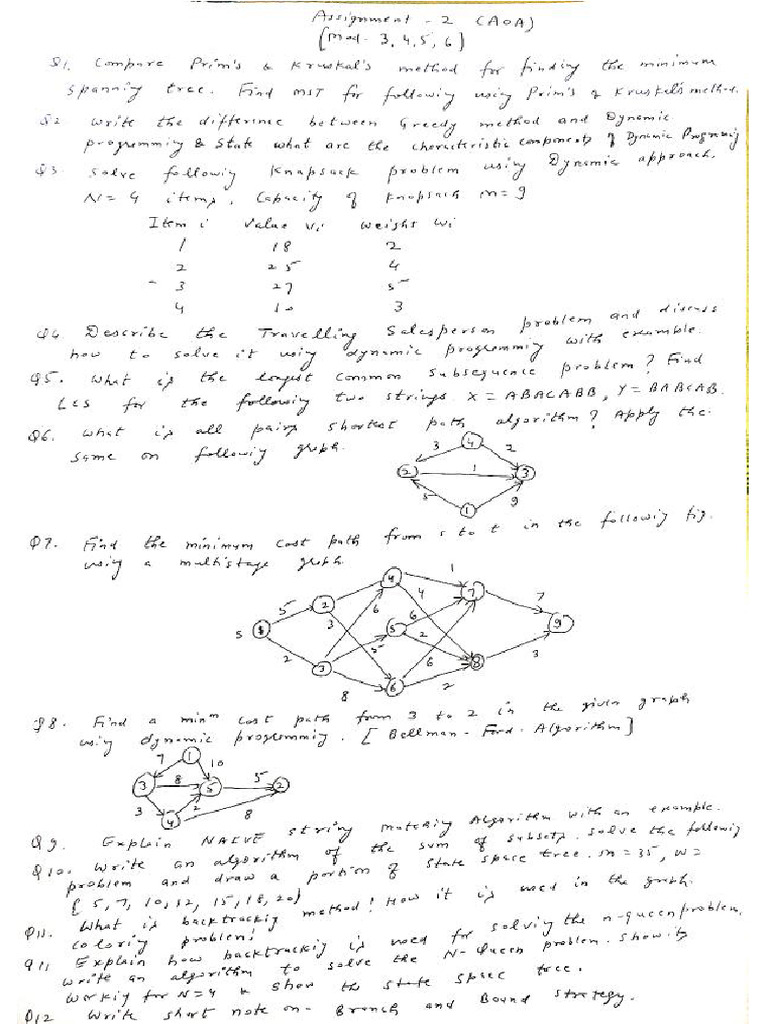 Assignment - 2 (AOA)
[mod - 3, 4, 5, 6]
Q1. Compare Prim's & Kruskal's method for finding the minimum
spanning tree. Find MST for following using Prim's & Kruskal's method.
Q2 Write the difference between Greedy method and Dynamic
programming & state what are the characteristic components of Dynamic Programming
Q3 Solve following knapsack problem using Dynamic approach.
N = 4 items, Capacity of knapsack m = 9
Item i Value Vi Weight Wi
1 18 2
2 25 4
- 3 27 5
4 10 3
Q4 Describe the Travelling Salesperson problem and discuss
how to solve it using dynamic programming with example.
Q5. What is the longest common subsequence problem? Find
LCS for the following two strings. X = ABACABB, Y = BABCAB.
Q6. What is all pairs shortest path algorithm? Apply the
same on following graph.
4
3 2
2 1 3
5 9
1
Q7. Find the minimum cost path from s to t in the following fig.
using a multistage graph.
4 1
5 2 4 7 7
6
S 1 3 5 6 9
2
2 3 5 6 8 3
8 6 2
Q8. Find a minm cost path from 3 to 2 in the given graph
using dynamic programming. [Bellman - Ford - Algorithm]
7 1 10
3 8 5 5 2
3 2
4 8
Q9. Explain NAIVE string matching Algorithm with an example.
Q10. Write an algorithm of the sum of subsets. Solve the following
problem and draw a portion of state space tree. m = 35, w =
{5, 7, 10, 12, 15, 18, 20}
Q11. What is backtracking method? How it is used in the graph
coloring problem?
Q11 Explain how backtracking is used for solving the n-queen problem.
Write an algorithm to solve the N-Queen problem. Show its
working for N=4 & show the state space tree.
Q12 Write short note on - Branch and Bound strategy.